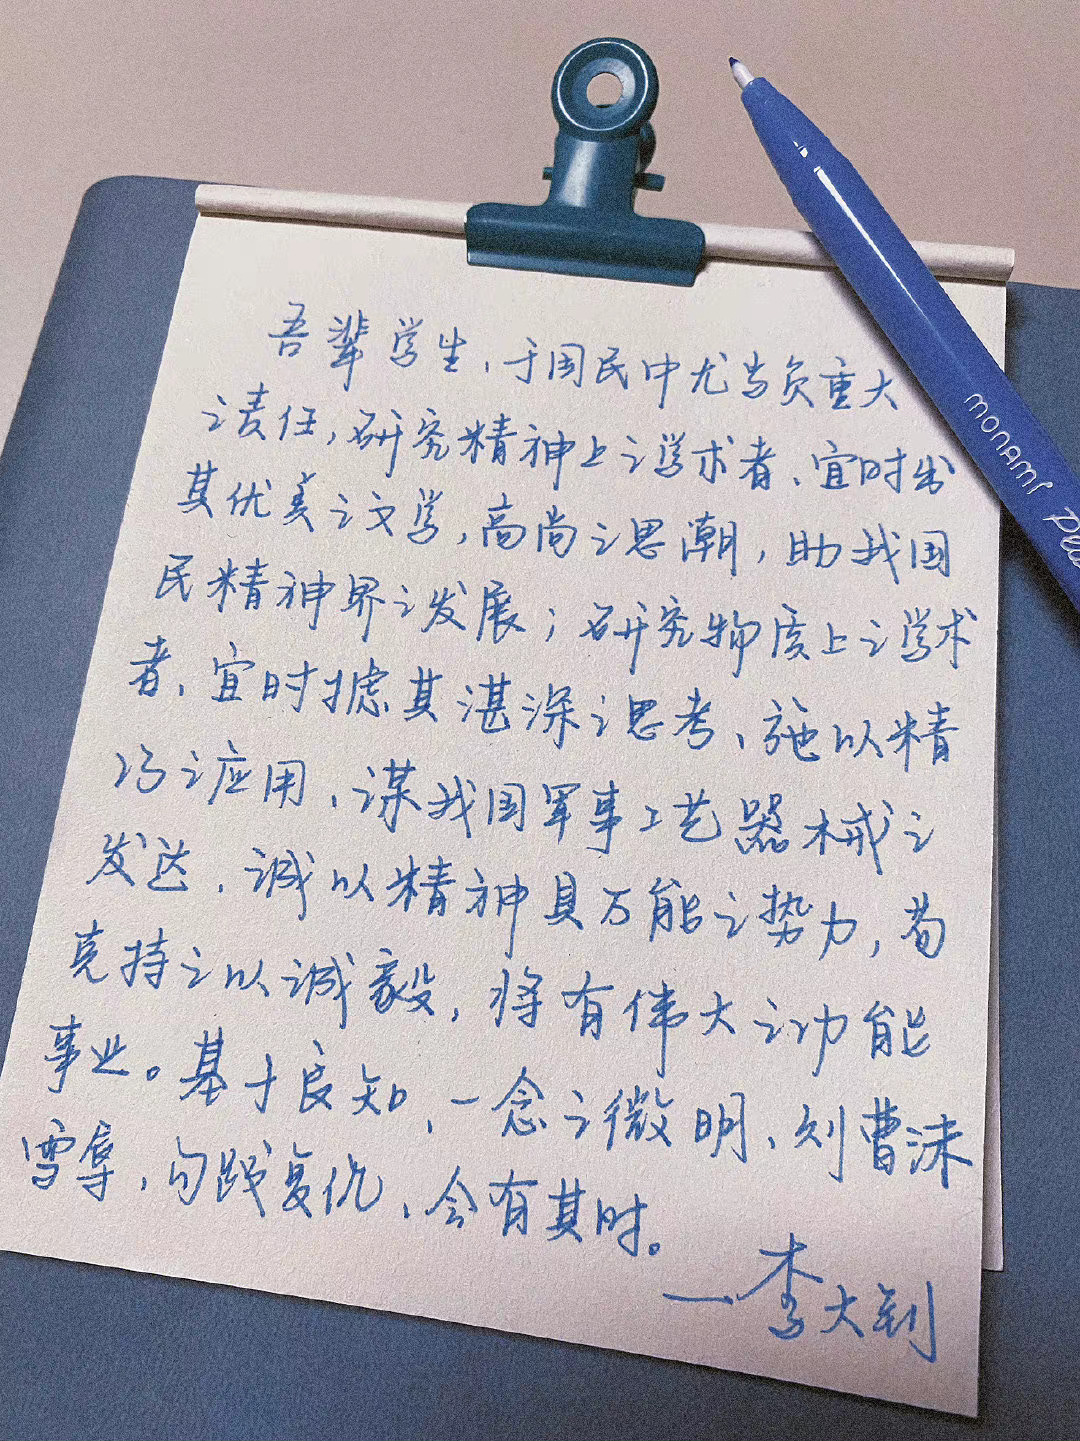 吾辈学生,于国民中尤当负重大
之责任,研究精神上之学术者、宜时出
其优美之文学,高尚之思潮,助我国
民精神界之发展;研究物质上之学术
者、宜时摅其湛深之思考、施以精
巧之应用、谋我国军事工艺器械之
发达,诚以精神具万能之势力,苟
克持之以诚毅,将有伟大之功能
事业。基于良知,一念之微明、则曹沫
雪辱,勾践复仇,会有其时。
—李大钊
MONAMI